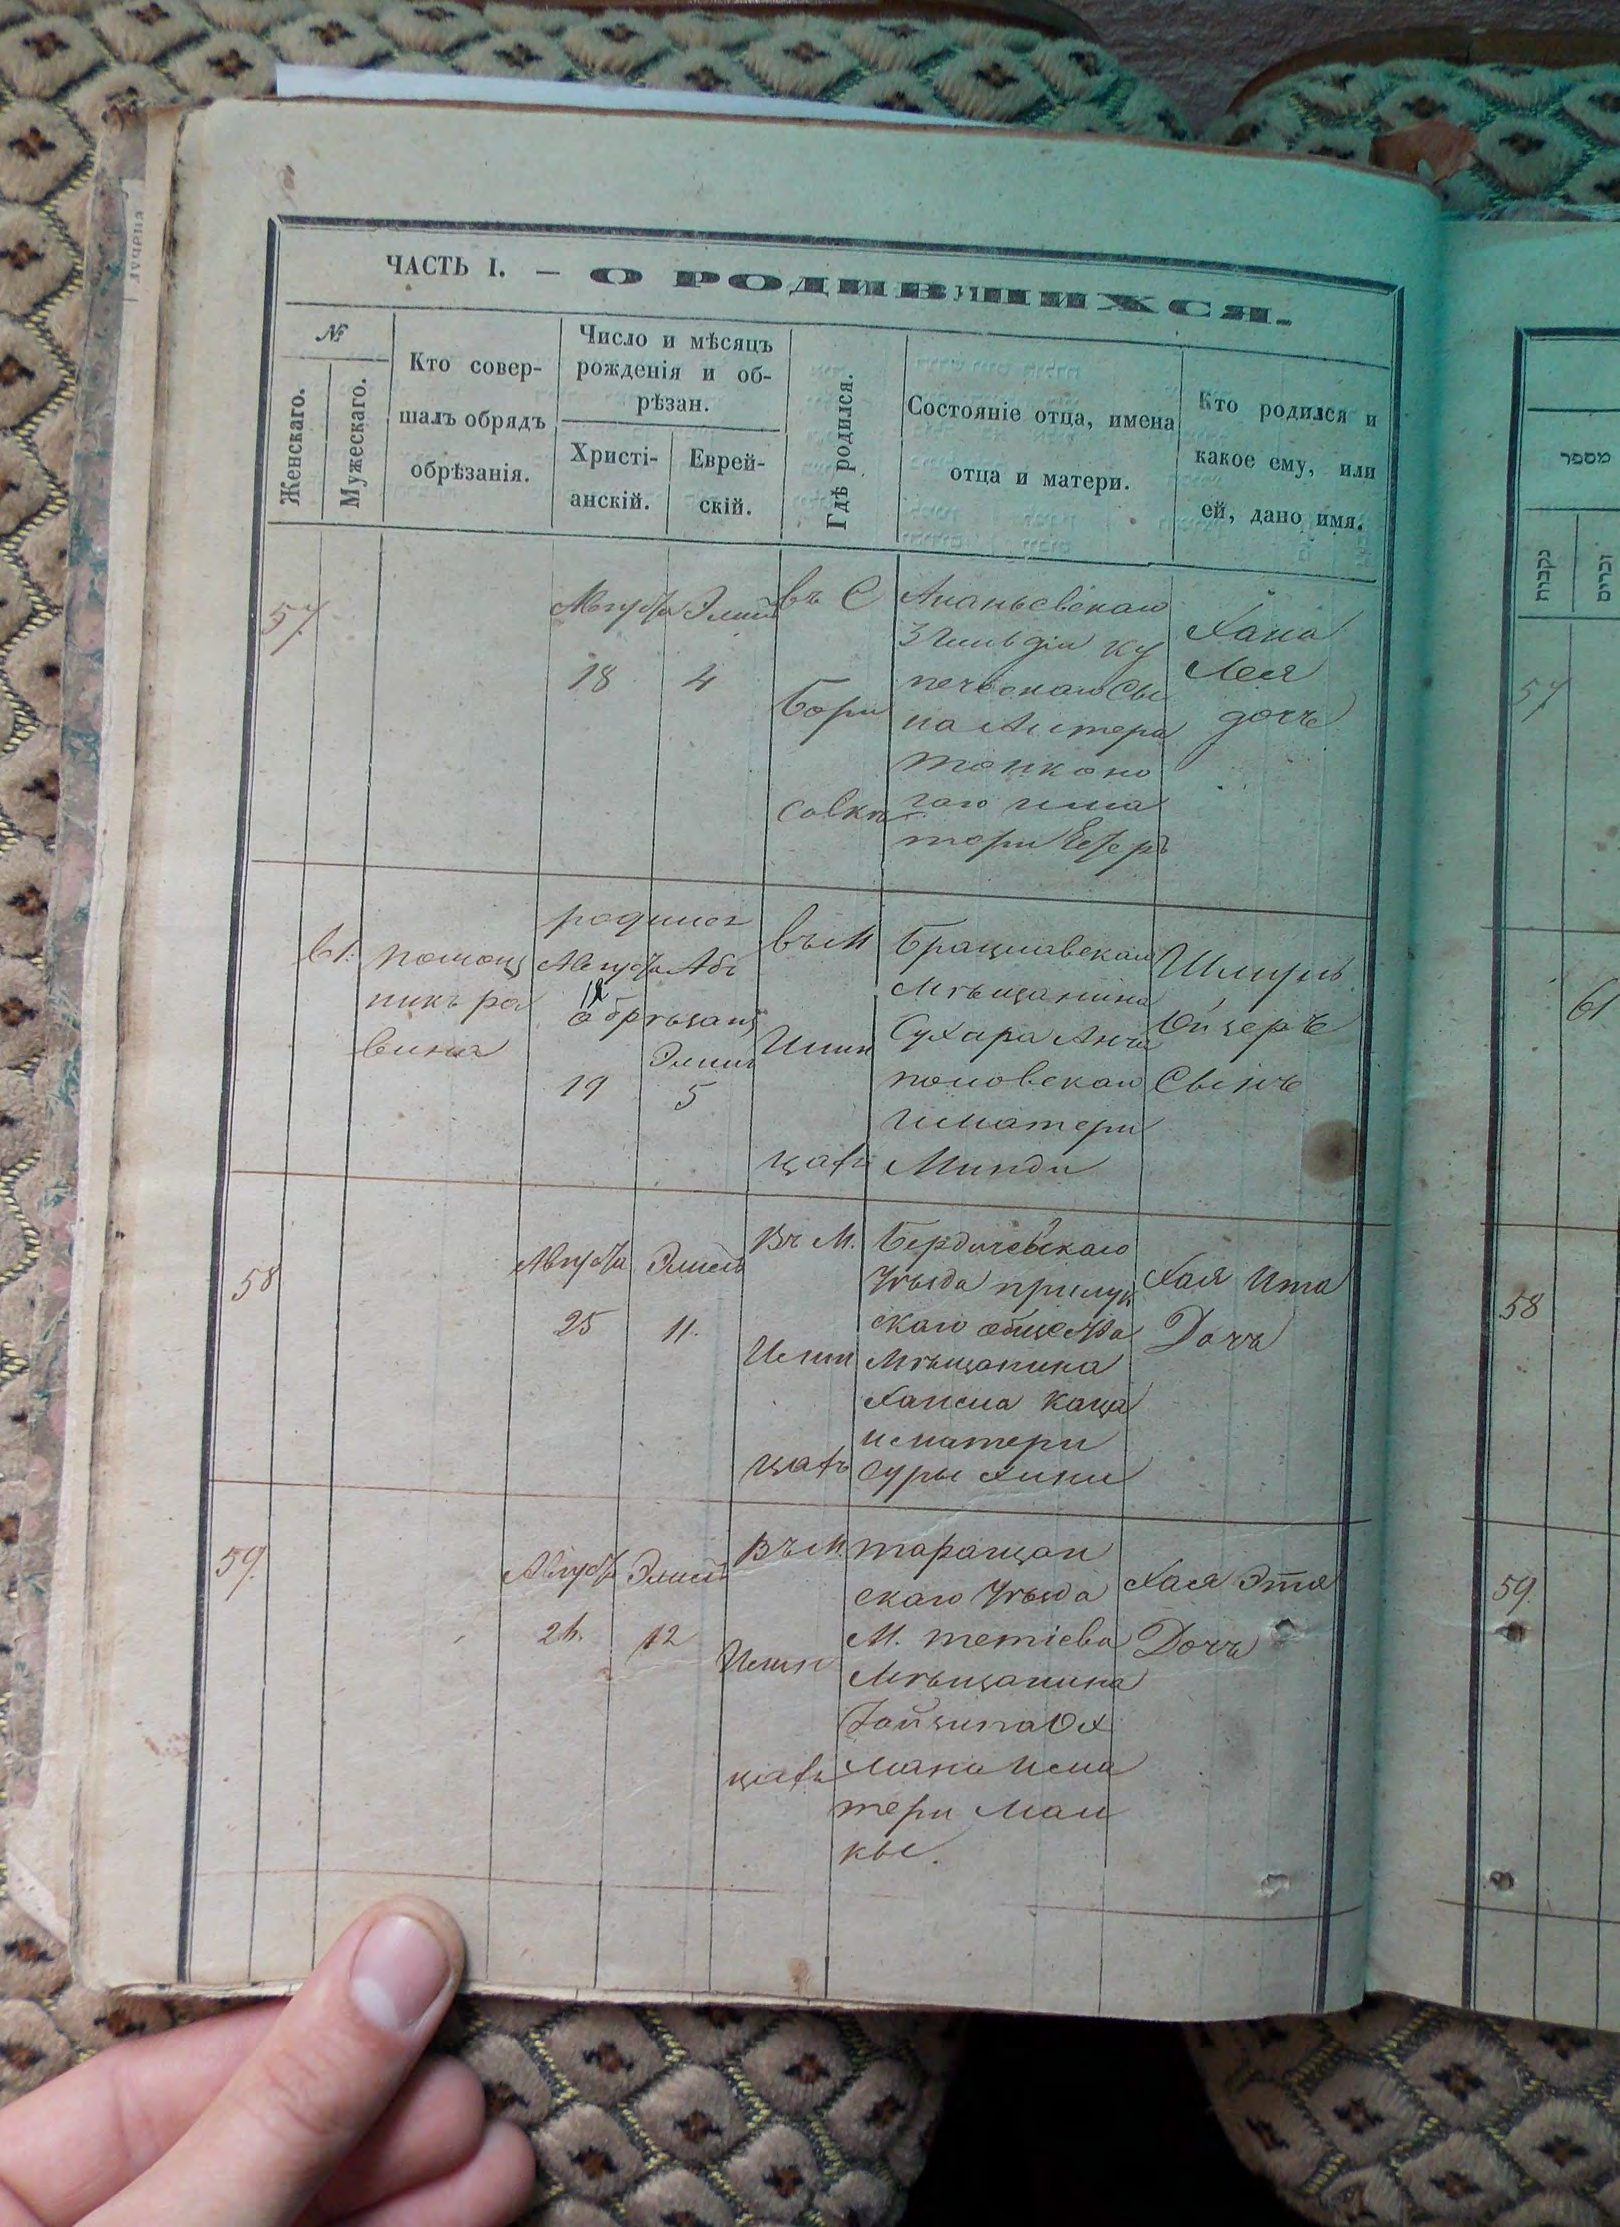 ЧАСТЬ I. — О РОДИВШИХСЯ.
№
Женскаго.
Мужескаго.
Кто совер-
шалъ обрядъ
обрѣзанія.
Число и мѣсяцъ
рожденія и об-
рѣзан.
Христі-
анскій.
Еврей-
скій.
Гдѣ родился.
Состояніе отца, имена
отца и матери.
Кто родился и
какое ему, или
ей, дано имя.
57.
Августа
18
4
въ С
Бори
совкѣ
Ананьевскаго
3 гильдіи ку
печескаго сы
на
гаго има
тери
Хана
Лея
дочь
61.
помощ
никъ ра
вина
родился
Августа Абъ
обрѣзанъ
19
5
въ М
Илин
цахъ
Брацлавскаго
мѣщанина
Сухара
поповскаго
иматери
Минди
Шмуль
Ойзеръ
Сынъ
58
Августа
25
Элюль
11.
Въ М.
Илин
цахъ
Бердичевскаго
уѣзда прилук
скаго общества
мѣщанина
Каца
иматери
Суры Хини
Хая Ита
Дочь
59.
Августа
26.
12
Въ М.
Илин
цахъ
таращан
скаго уѣзда
М. тетіева
мѣщанина
мана има
тери Мал
кы.
Хася Этя
Дочь
מספר
נקבות
זכרים
57
61
58
59.